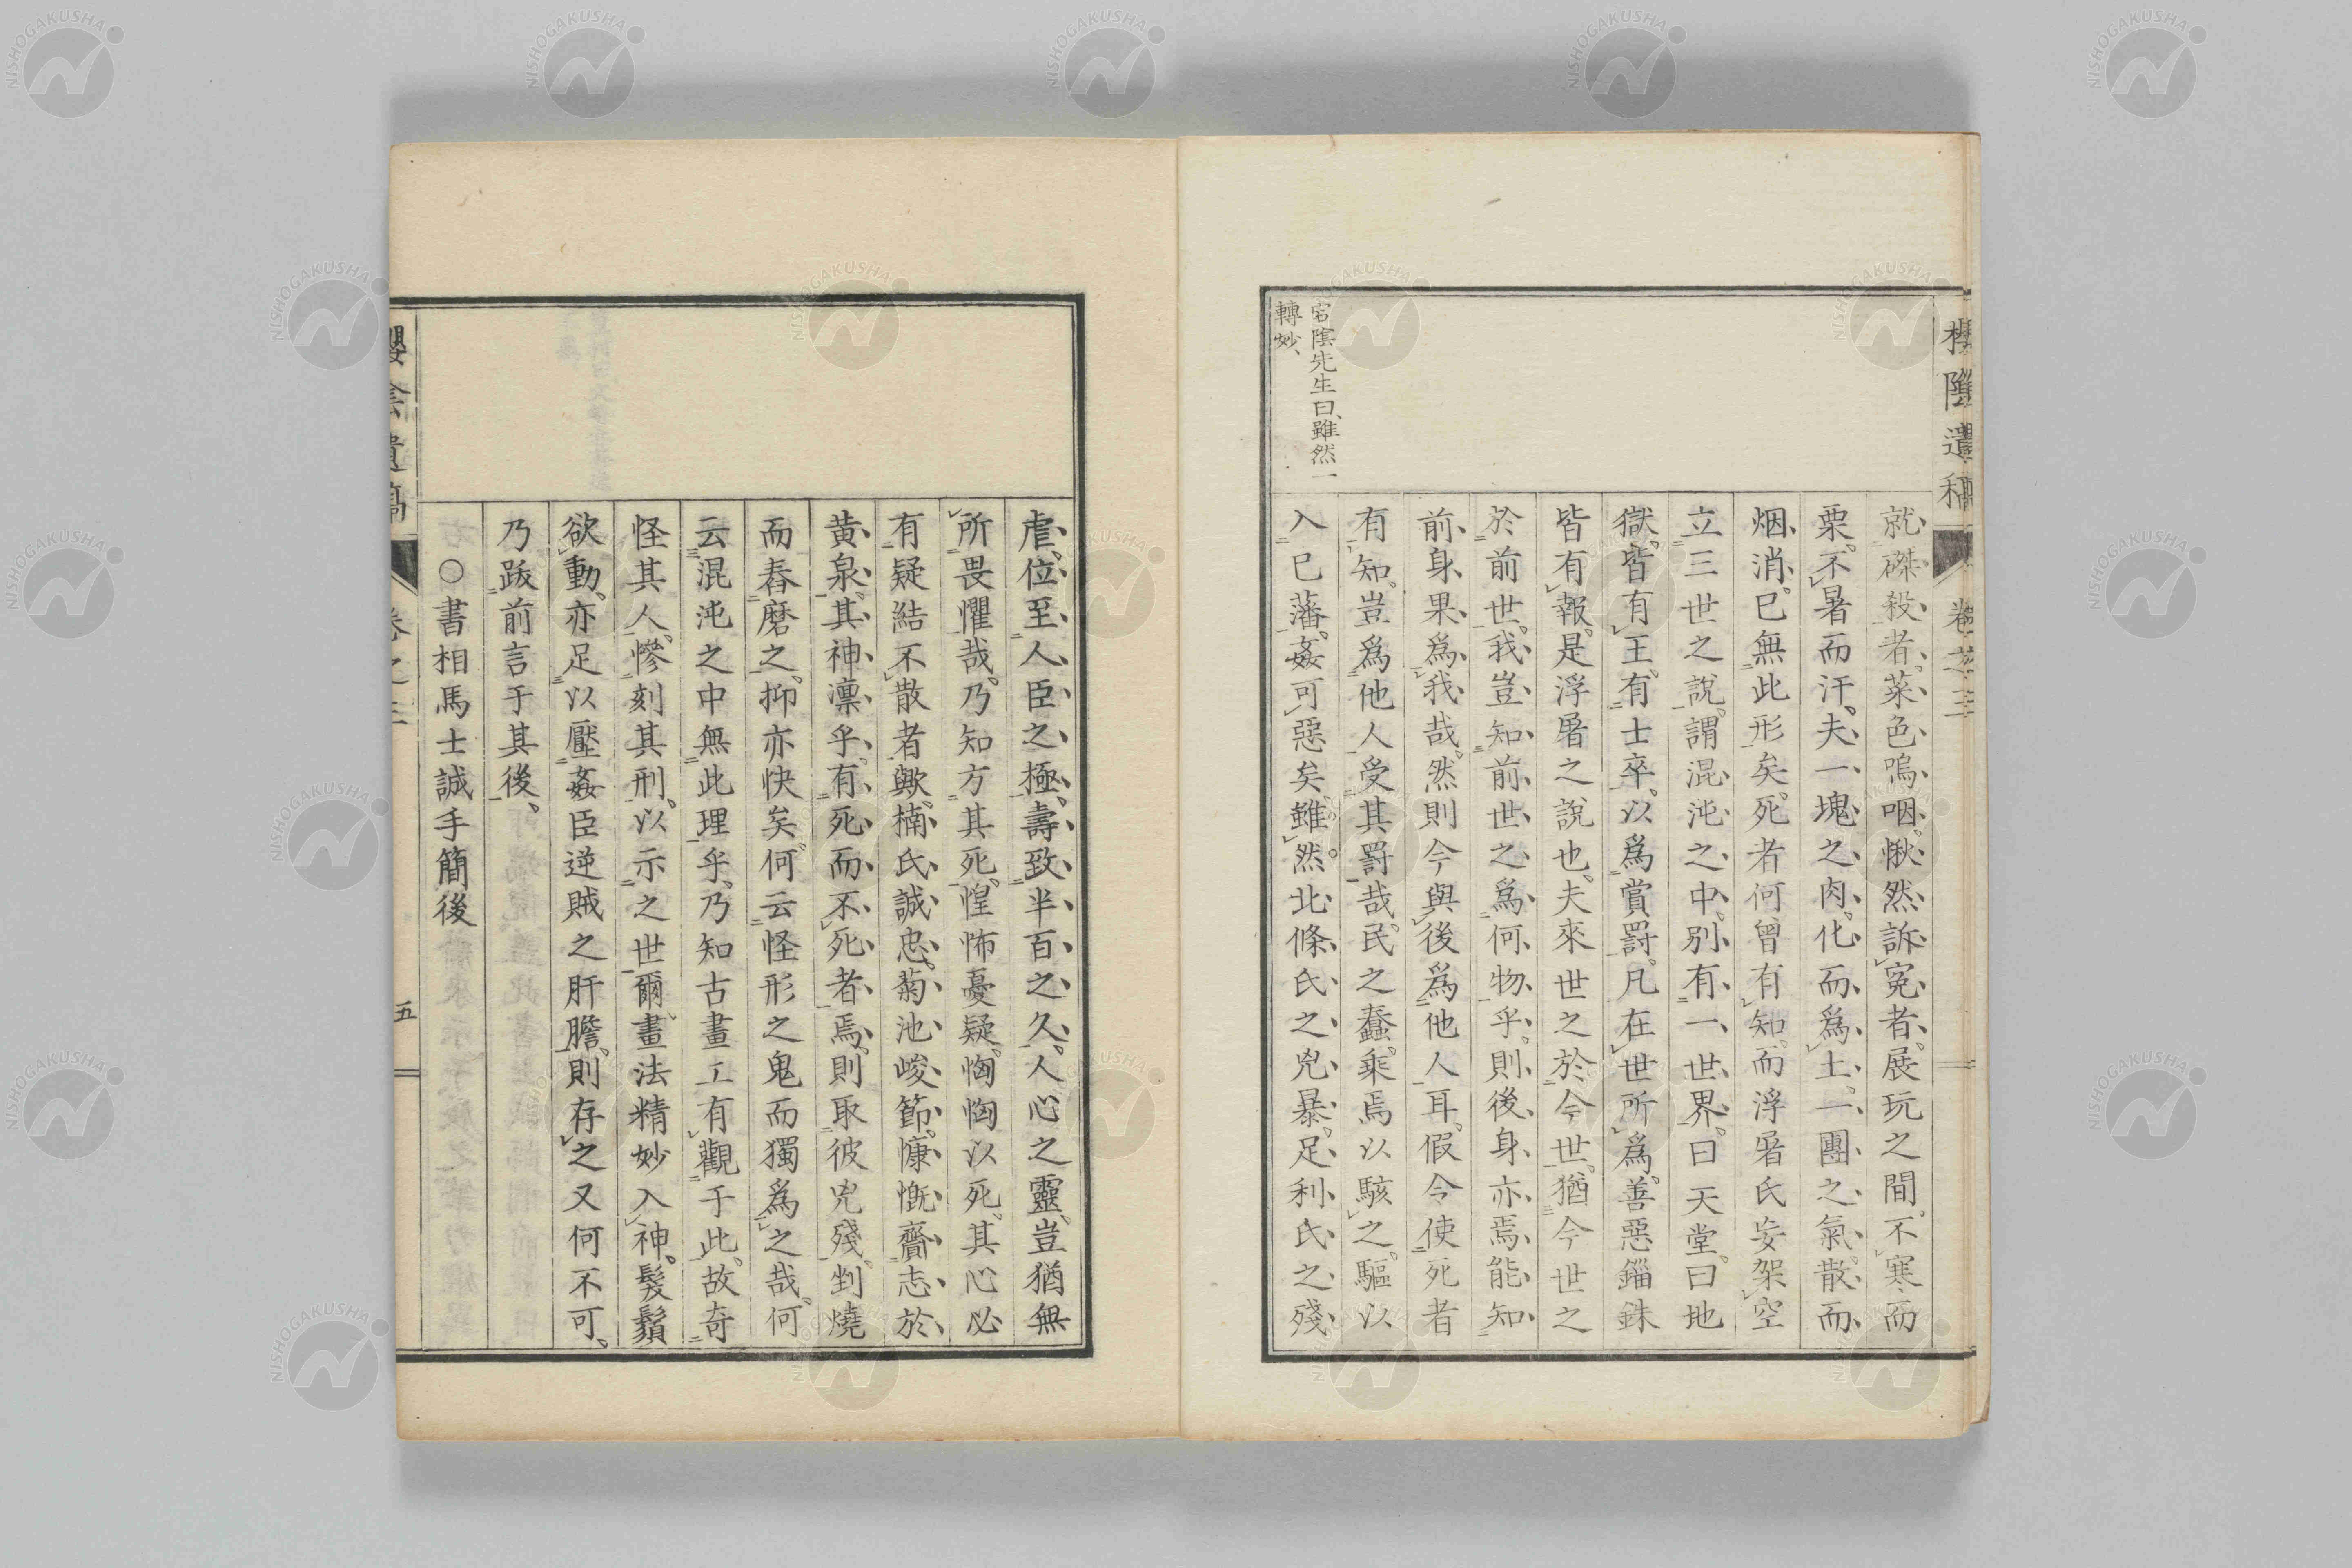 櫻陰遺稿 卷之三
就、磔、殺、者、。菜、色、嗚、咽、。愀、然、訴、寃、者、。展玩之間。不寒而
栗。不暑而汗。夫、一、塊、之、肉、。化、而、爲、土、。一、團、之、氣、。散、而、
烟、消、。已無此形矣。死者何曾有知。而浮屠氏妄架空
立三世之說。謂混、沌、之、中、。別、有、一、世、界、。曰天堂。曰地
獄。皆有王。有士卒。以爲賞罸。凡在世所爲。善惡錙銖
皆有報。是浮屠之說也。夫來世之於今世。猶今世之
於前世。我、豈、知、前、世、之、爲、何、物、乎、。則、後、身、亦、焉、能、知、
前、身、果、爲、我、哉、。然則今與後爲他人耳。假令使死者
有知。豈爲他人受其罸哉。民之蠢。乘焉以駭之。驅以
入巳藩。姦可惡矣。雖。然。北、條、氏、之、兇、暴、。足、利、氏、之、殘、
宕陰先生曰、雖然一
轉妙、
虐、。位、至、人、臣、之、極、。壽、致、半、百、之、久、。人心之靈。豈猶無
所畏懼哉。乃知方其死。惶怖憂疑。恟恟以死。其心必
有疑結不散者歟。楠、氏、誠、忠、。菊、池、峻、節、。慷、慨、齎、志、於、
黃、泉、。其、神、凛、乎、。有、死、而、不、死、者、焉、。則取彼兇殘。剉燒
而舂磨之。抑亦快矣。何云怪形之鬼而獨爲之哉。何
云混沌之中無此理乎。乃知古畫工有觀于此。故奇
怪其人。慘刻其刑。以示之世爾。畫法精妙入神。髮鬚
欲動。亦足以壓姦臣逆賊之肝膽。則存之又何不可。
乃跋前言于其後。
○書相馬士誠手簡後
櫻陰遺稿 卷之三 五